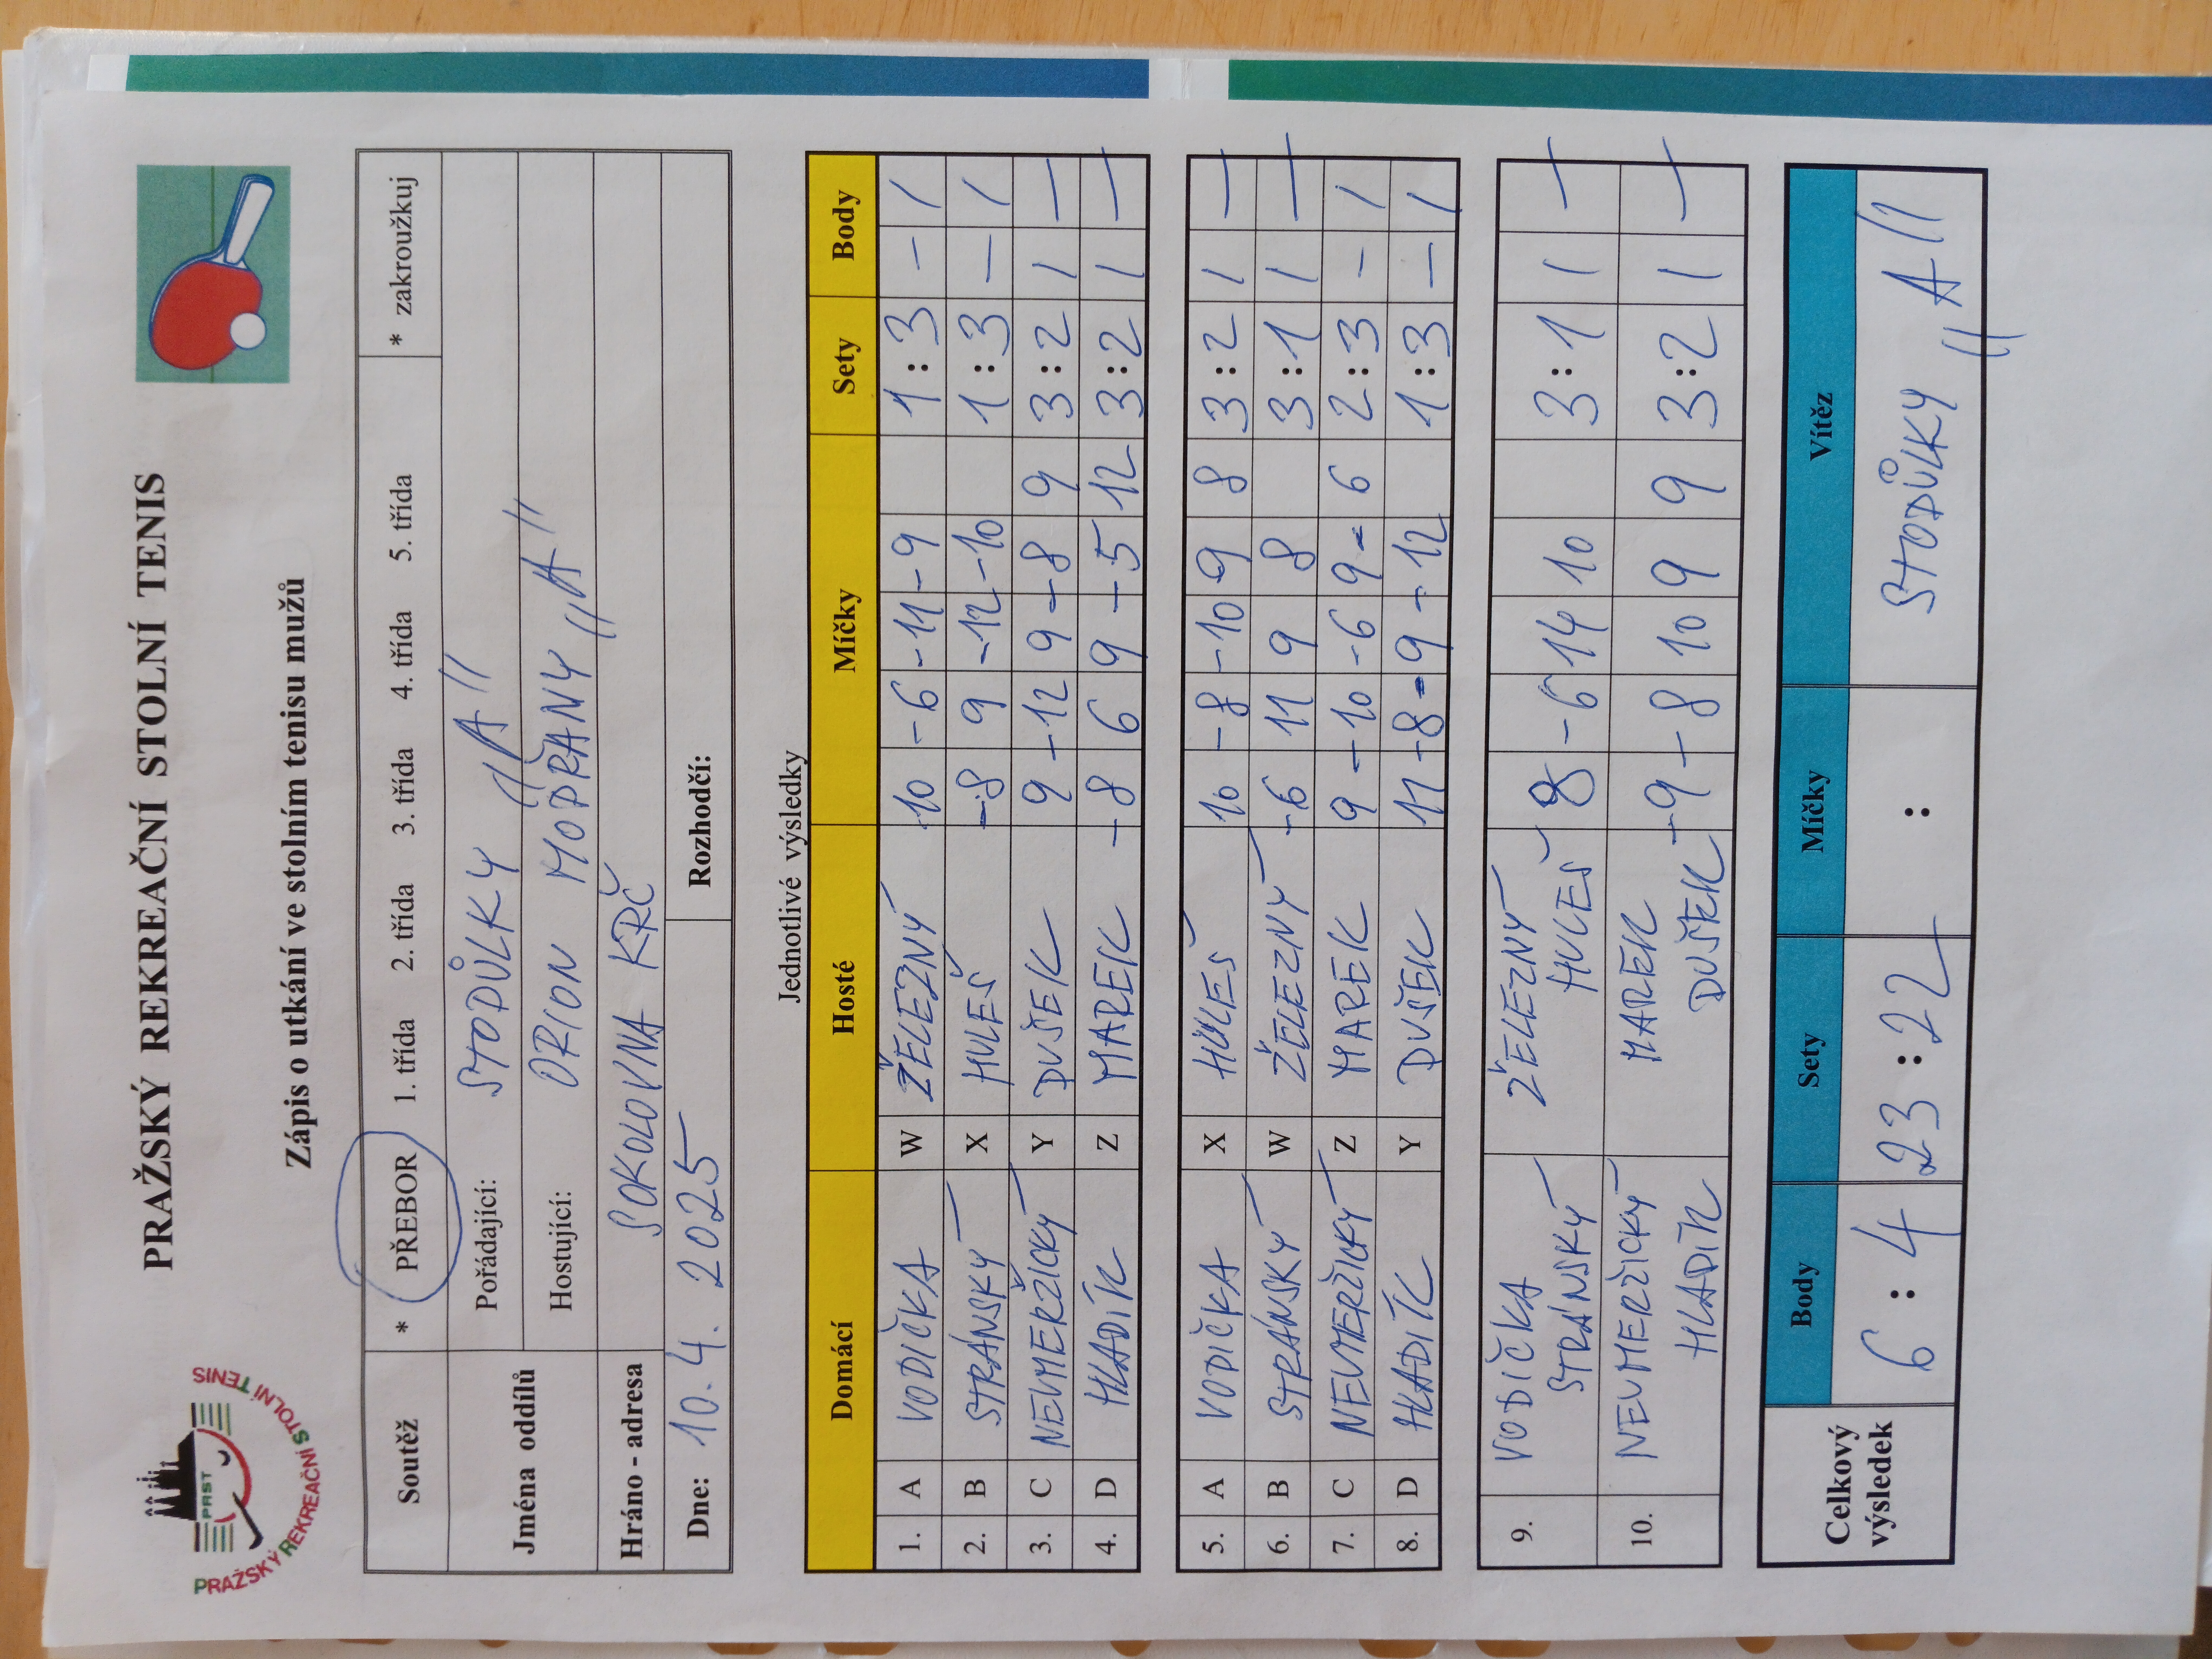 PRAŽSKÝ REKREAČNÍ STOLNÍ TENIS
PRST
PRAŽSKÝ REKREAČNÍ STOLNÍ TENIS
Zápis o utkání ve stolním tenisu mužů
Soutěž * PŘEBOR 1. třída 2. třída 3. třída 4. třída 5. třída * zakroužkuj
Jména oddílů Pořádající: STODŮLKY "A"
Hostující: ORION MODŘANY "A"
Hráno - adresa SOKOLOVNA KRČ
Dne: 10. 4. 2025 Rozhodčí:
Jednotlivé výsledky
Domácí Hosté Míčky Sety Body
1. A VODIČKA W ŽELEZNÝ 10 -6 -11 -9 1 : 3 — 1
2. B STRÁNSKÝ X HULEŠ -8 9 -12 -10 1 : 3 — 1
3. C NEUMERŽICKÝ Y DUŠEK 9 -12 9 -8 9 3 : 2 1 —
4. D HLADÍK Z MAREK -8 6 9 -5 12 3 : 2 1 —
5. A VODIČKA X HULEŠ 10 -8 -10 9 8 3 : 2 1 —
6. B STRÁNSKÝ W ŽELEZNÝ -6 11 9 8 3 : 1 1 —
7. C NEUMERŽICKÝ Z MAREK 9 -10 -6 9 -6 2 : 3 — 1
8. D HLADÍK Y DUŠEK 11 -8 -9 -12 1 : 3 — 1
9. VODIČKA STRÁNSKÝ ŽELEZNÝ HULEŠ 8 -6 14 10 3 : 1 1 —
10. NEUMERŽICKÝ HLADÍK MAREK DUŠEK -9 -8 10 9 9 3 : 2 1 —
Celkový výsledek Body Sety Míčky Vítěz
6 : 4 23 : 22 : STODŮLKY "A"